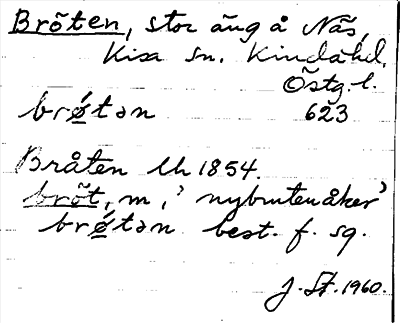 Brö̃ten, stor äng å Näs,
Kisa sn. Kinda hd.
Östg. l.
brǿtən 623
Bråten Lh 1854.
brö̃t, m, 'nybruten åker'
brǿtən best. f. sg.
J. St. 1960.